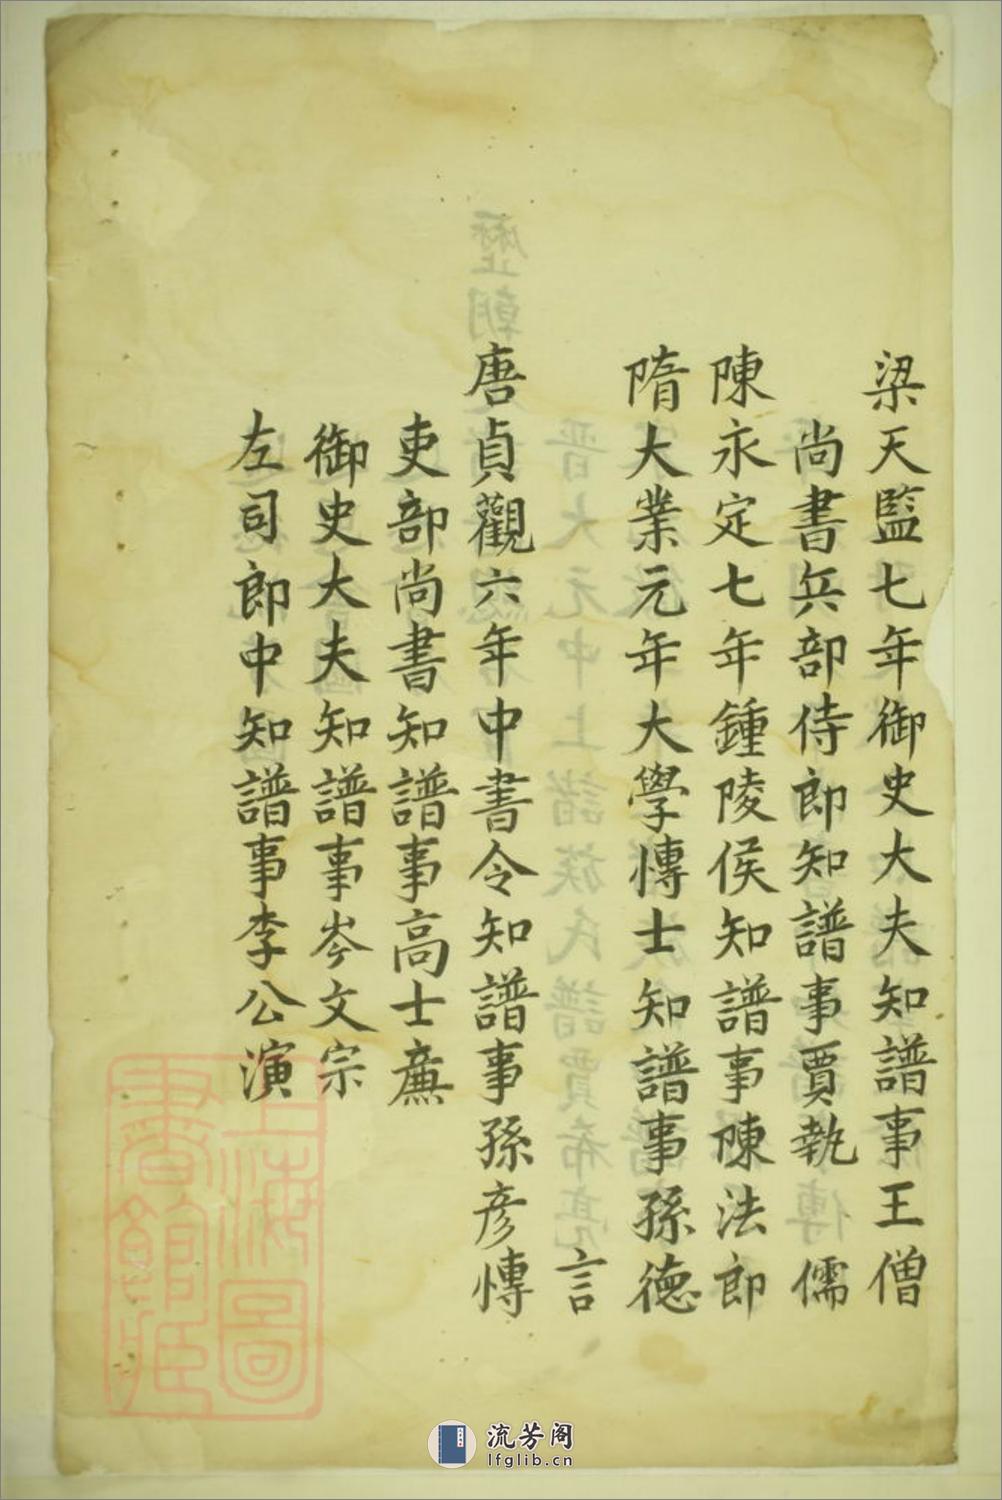 梁天監七年御史大夫知譜事王僧
尚書兵部侍郎知譜事賈執 儒
陳永定七年鍾陵侯知譜事陳法郎
隋大業元年大學愽士知譜事孫德
言
唐貞觀六年中書令知譜事孫彦愽
吏部尚書知譜事高士廉
御史大夫知譜事岑文宗
左司郎中知譜事李公演
上海圖
書館藏
流芳阁
lfglib.cn